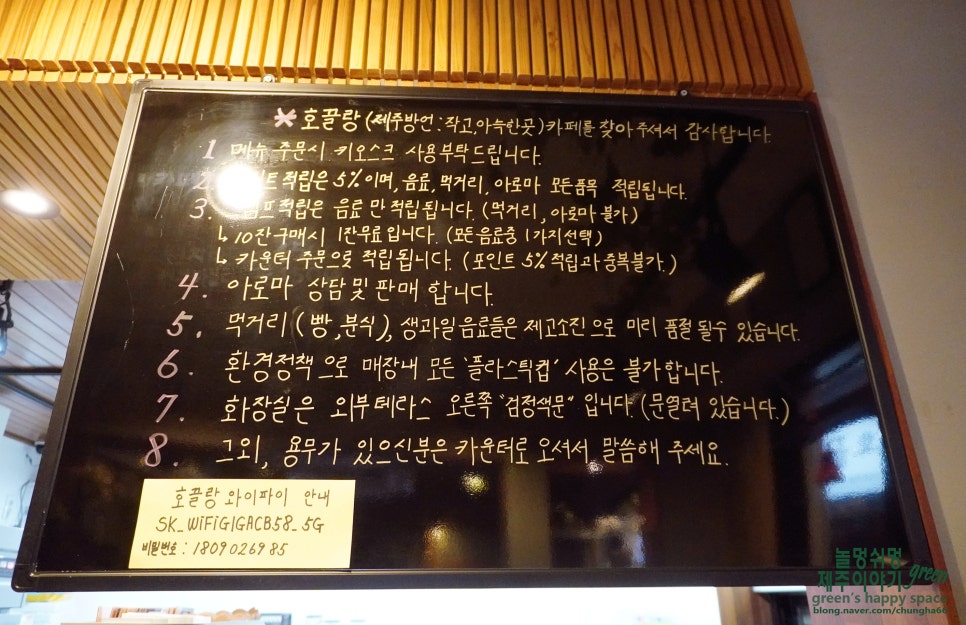 * 호끌랑 (제주방언 : 작고, 아늑한곳) 카페를 찾아 주셔서 감사합니다.
1 메뉴 주문시 키오스크 사용부탁드립니다.
2. 적립은 5%이며, 음료, 먹거리, 아로마 모든품목 적립됩니다.
3. 적립은 음료만 적립됩니다. (먹거리, 아로마 불가)
↳ 10잔 구매시 1잔무료입니다. (모든음료중 1가지선택)
↳ 카운터 주문으로 적립됩니다. (포인트 5% 적립과 중복불가.)
4. 아로마 상담및판매 합니다.
5. 먹거리 (빵, 분식), 생과일음료들은 재고소진으로 미리 품절 될수 있습니다.
6. 환경정책으로 매장내 모든 '플라스틱컵' 사용은 불가합니다.
7. 화장실은 외부테라스 오른쪽 "검정색문" 입니다. (문열려 있습니다.)
8. 그외, 용무가 있으신분은 카운터로 오셔서 말씀해 주세요.
호끌랑 와이파이 안내
SK_WiFiGIGACB58_5G
비밀번호 : 1809026985
놀멍쉬멍
제주이야기 green
green's happy space
blong.naver.com/chungha66